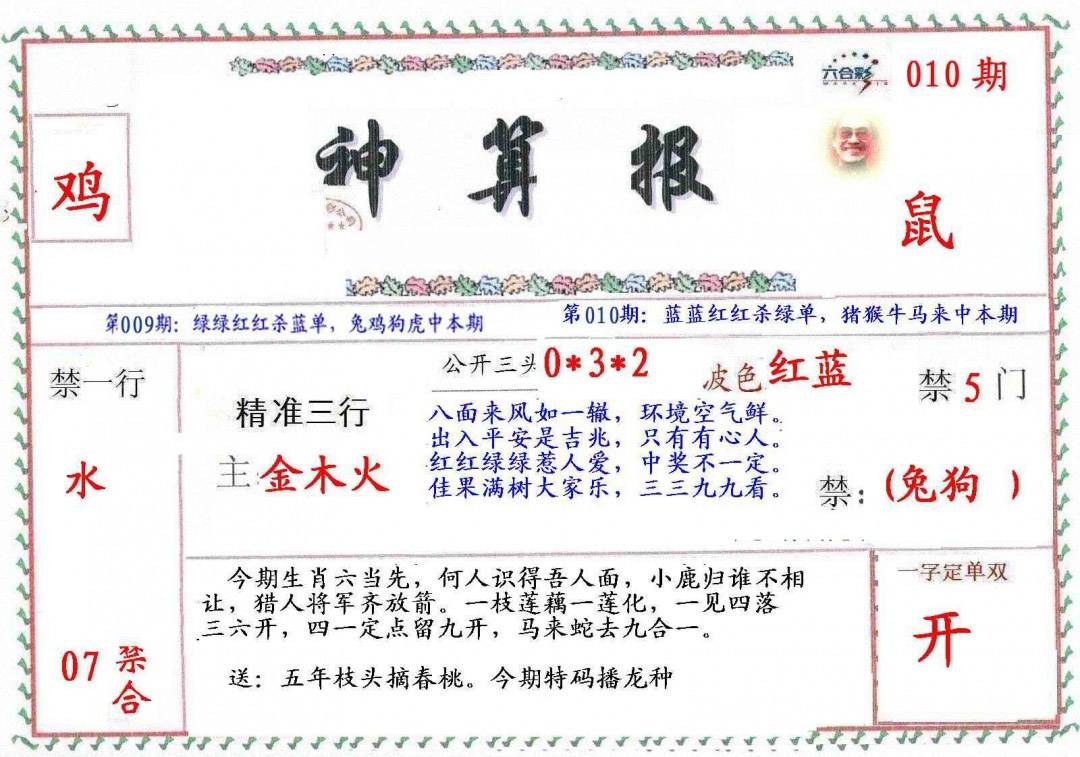 六合彩
010期
鸡
神算报
鼠
第009期：绿绿红红杀蓝单，兔鸡狗虎中本期
第010期：蓝蓝红红杀绿单，猪猴牛马来中本期
禁一行
水
07禁合
精准三行
主:金木火
公开三头0*3*2
波色红蓝
八面来风如一辙，环境空气鲜。
出入平安是吉兆，只有有心人。
红红绿绿惹人爱，中奖不一定。
佳果满树大家乐，三三九九看。
禁5门
禁:(兔狗 )
今期生肖六当先，何人识得吾人面，小鹿归谁不相
让，猎人将军齐放箭。一枝莲藕一莲化，一见四落
三六开，四一定点留九开，马来蛇去九合一。
送：五年枝头摘春桃。今期特码播龙种
一字定单双
开